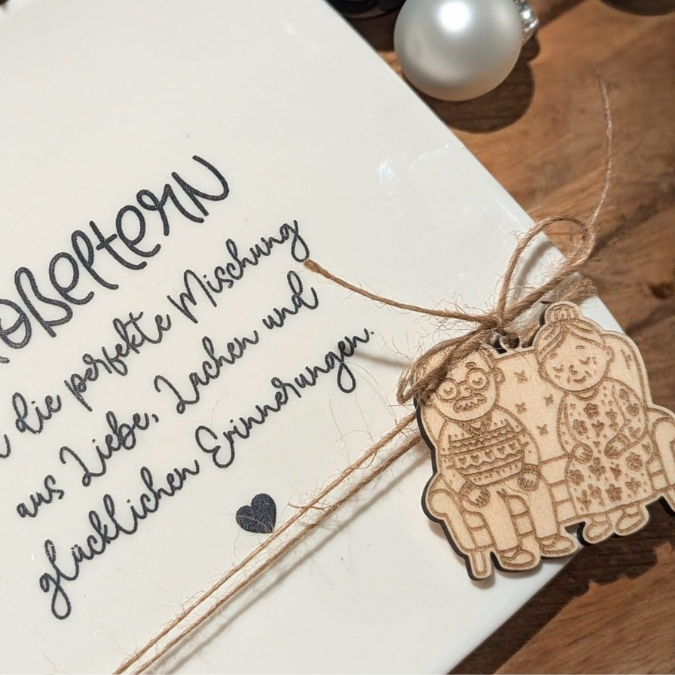 oßeltern
die perfekte Mischung
aus Liebe, Lachen und
glücklichen Erinnerungen.